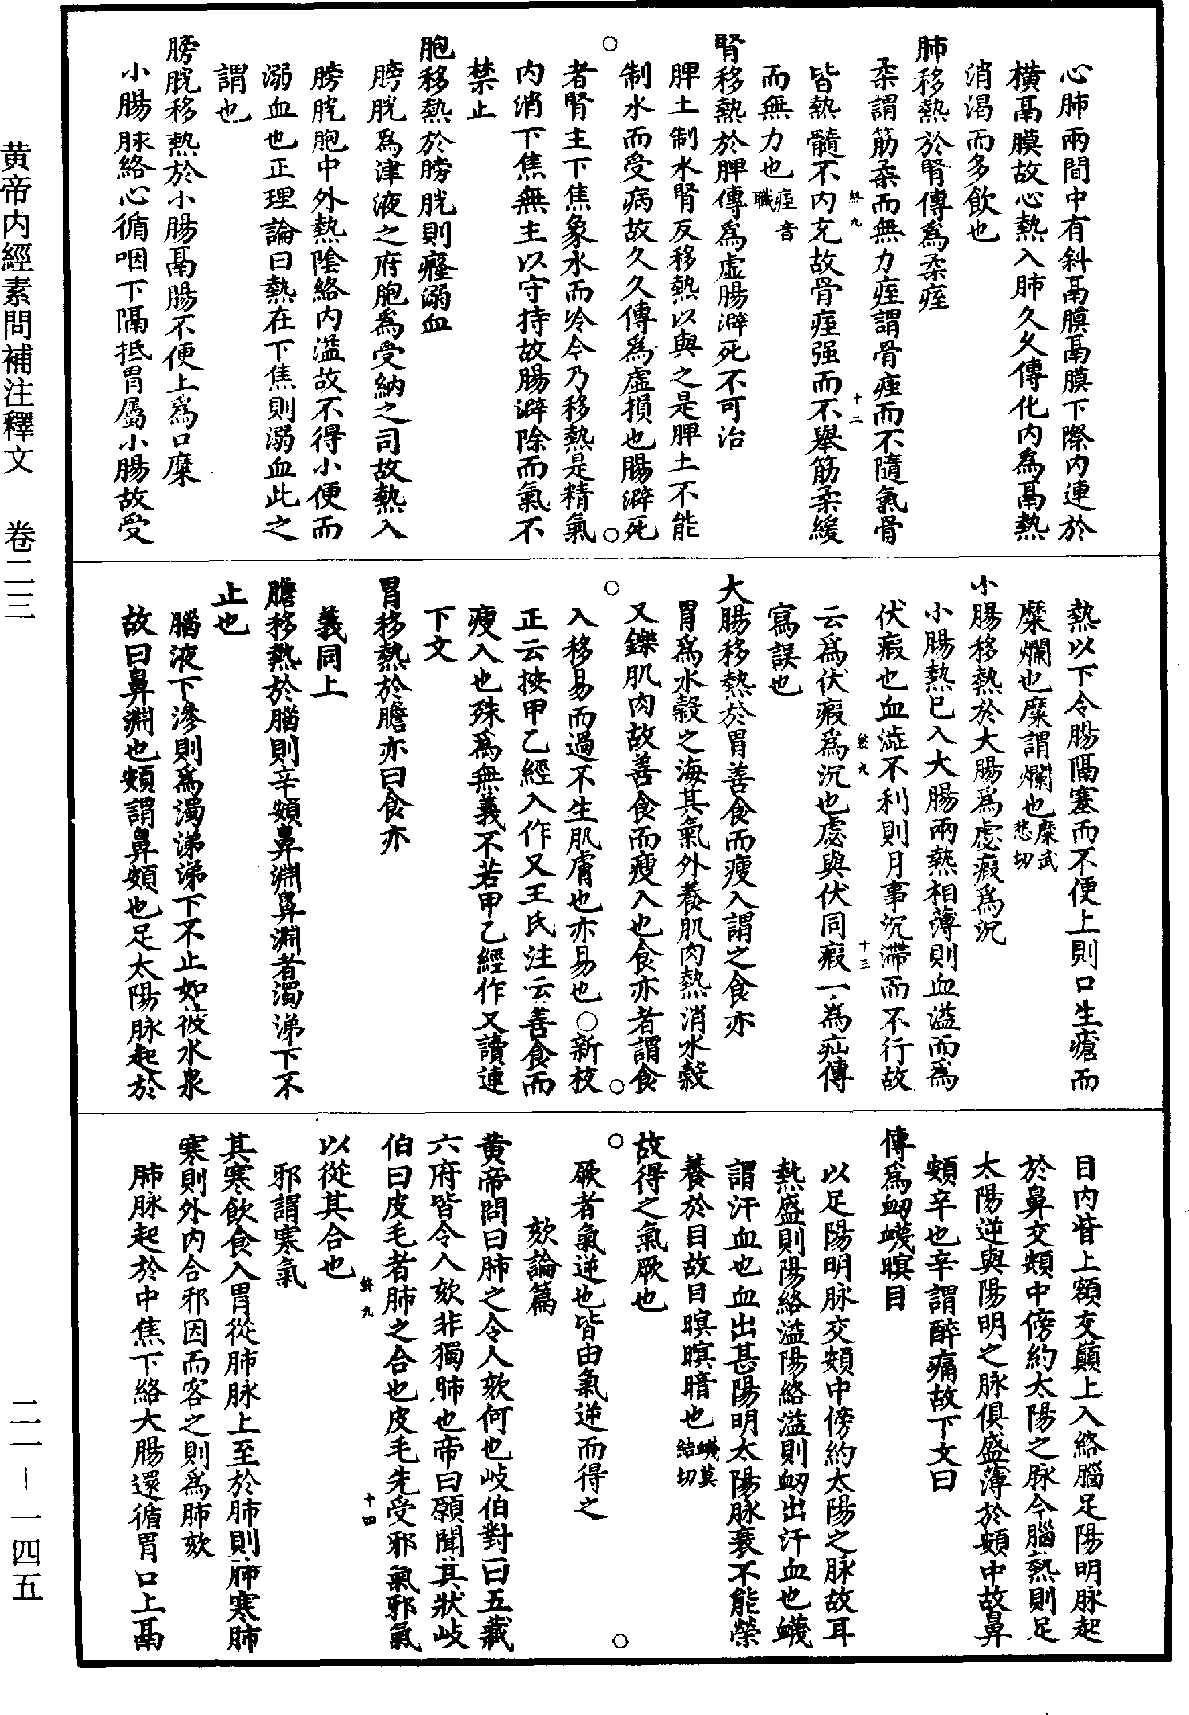 黄帝內經素問補注釋文　卷二三
二一－一四五
心肺兩間中有斜鬲膜鬲膜下際內連於
橫鬲膜故心熱入肺久久傳化內爲鬲熱
消渴而多飲也
肺移熱於腎傳爲柔痓
柔謂筋柔而無力痓謂骨痓而不隨氣骨
皆熱髓不內充故骨痓强而不舉筋柔緩
而無力也痓音職
腎移熱於脾傳爲虛腸澼死不可治
脾土制水腎反移熱以與之是脾土不能
制水而受病故久久傳爲虛損也腸澼死
者腎主下焦象水而冷今乃移熱是精氣
內消下焦無主以守持故腸澼除而氣不
禁止
胞移熱於膀胱則癃溺血
膀胱爲津液之府胞爲受納之司故熱入
膀胱胞中外熱陰絡內溢故不得小便而
溺血也正理論曰熱在下焦則溺血此之
謂也
膀胱移熱於小腸鬲腸不便上爲口糜
小腸脉絡心循咽下隔抵胃屬小腸故受
熱以下令腸隔塞而不便上則口生瘡而
糜爛也糜謂爛也糜武悲切
小腸移熱於大腸爲虙瘕爲沉
小腸熱已入大腸兩熱相薄則血溢而爲
伏瘕也血澁不利則月事沉滯而不行故
云爲伏瘕爲沉也虙與伏同瘕一爲疝傳
寫誤也
大腸移熱於胃善食而瘦入謂之食亦
胃爲水穀之海其氣外養肌肉熱消水穀
又鑠肌肉故善食而瘦入也食亦者謂食
入移易而過不生肌膚也亦易也○新校
正云按甲乙經入作又王氏注云善食而
瘦入也殊爲無義不若甲乙經作又讀連
下文
胃移熱於膽亦曰食亦
義同上
膽移熱於腦則辛頞鼻淵鼻淵者濁涕下不
止也
腦液下滲則爲濁涕涕下不止如彼水泉
故曰鼻淵也頞謂鼻頞也足太陽脉起於
目內眥上額交巔上入絡腦足陽明脉起
於鼻交頞中傍約太陽之脉今腦熱則足
太陽逆與陽明之脉俱盛薄於頞中故鼻
頞辛也辛謂酸痛故下文曰
傳爲衂衊瞑目
以足陽明脉交頞中傍約太陽之脉故耳
熱盛則陽絡溢陽絡溢則衂出汗血也衊
謂汗血也血出甚陽明太陽脉衰不能榮
養於目故目瞑瞑暗也衊莫結切
故得之氣厥也
厥者氣逆也皆由氣逆而得之
欬論篇
黄帝問曰肺之令人欬何也岐伯對曰五藏
六府皆令人欬非獨肺也帝曰願聞其狀岐
伯曰皮毛者肺之合也皮毛先受邪氣邪氣
以從其合也
邪謂寒氣
其寒飲食入胃從肺脉上至於肺則肺寒肺
寒則外內合邪因而客之則爲肺欬
肺脉起於中焦下絡大腸還循胃口上鬲